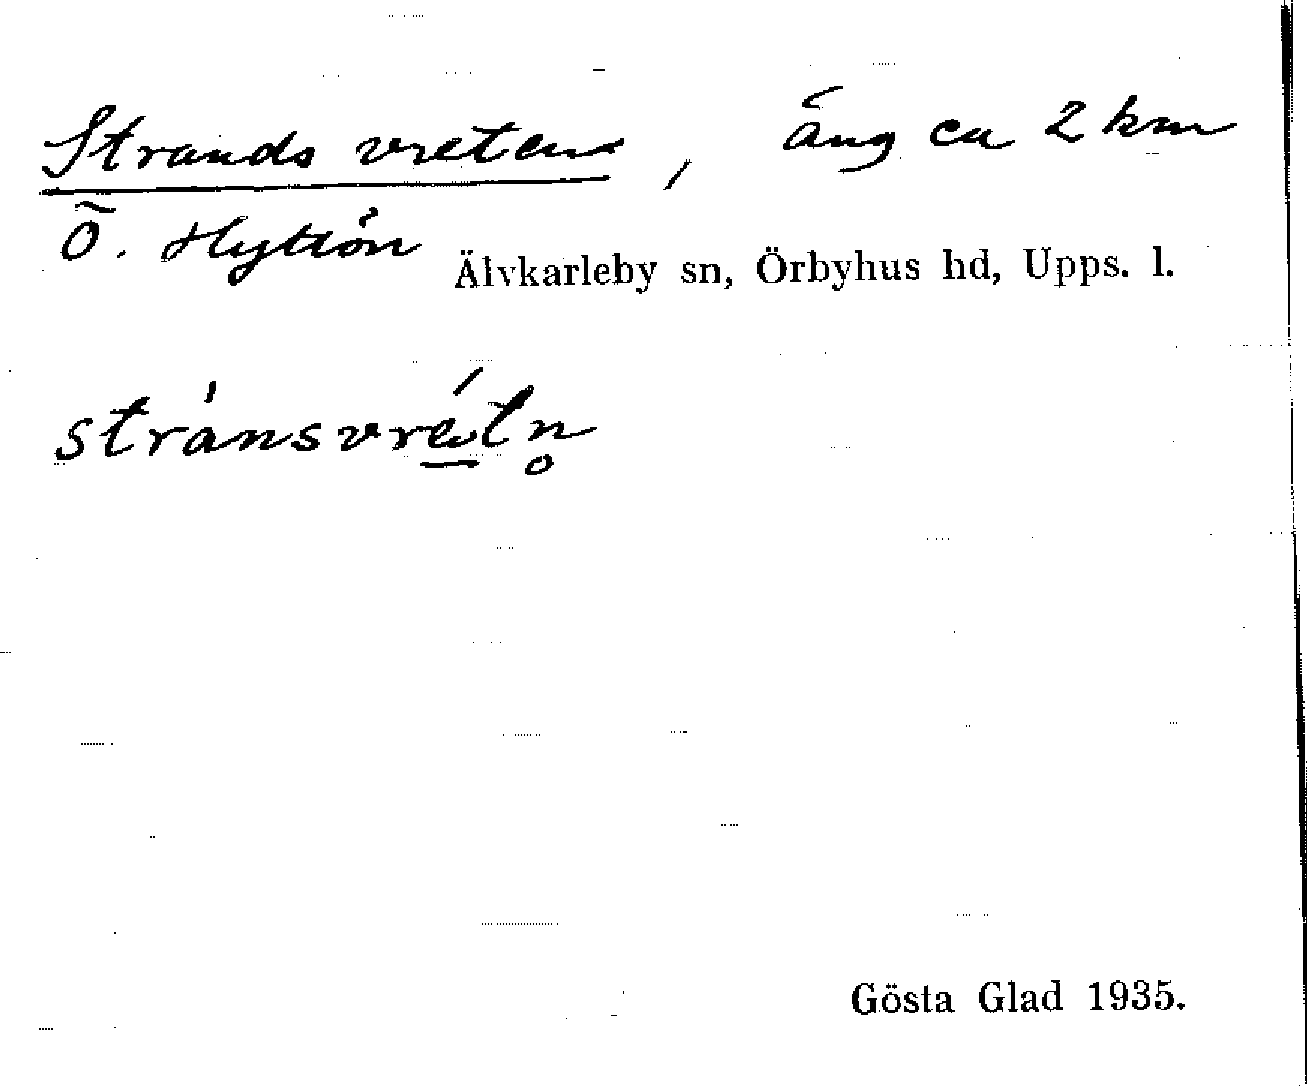 Strands vreten, äng ca 2 km
Ö. Hyttön Älvkarleby sn, Örbyhus hd, Upps. l.
stránsvrétn̥
Gösta Glad 1935.